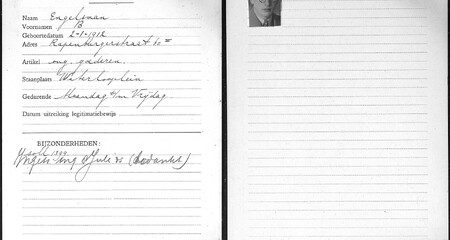 Naam Engelsman
Voornamen B
Geboortedatum 2-1-1912
Adres Rapenburgerstraat 10 III
Artikel ong. goederen.
Staanplaats Waterlooplein
Gedurende Maandag t/m Vrijdag.
Datum uitreiking legitimatiebewijs
BIJZONDERHEDEN:
ing Juli (bedankt)